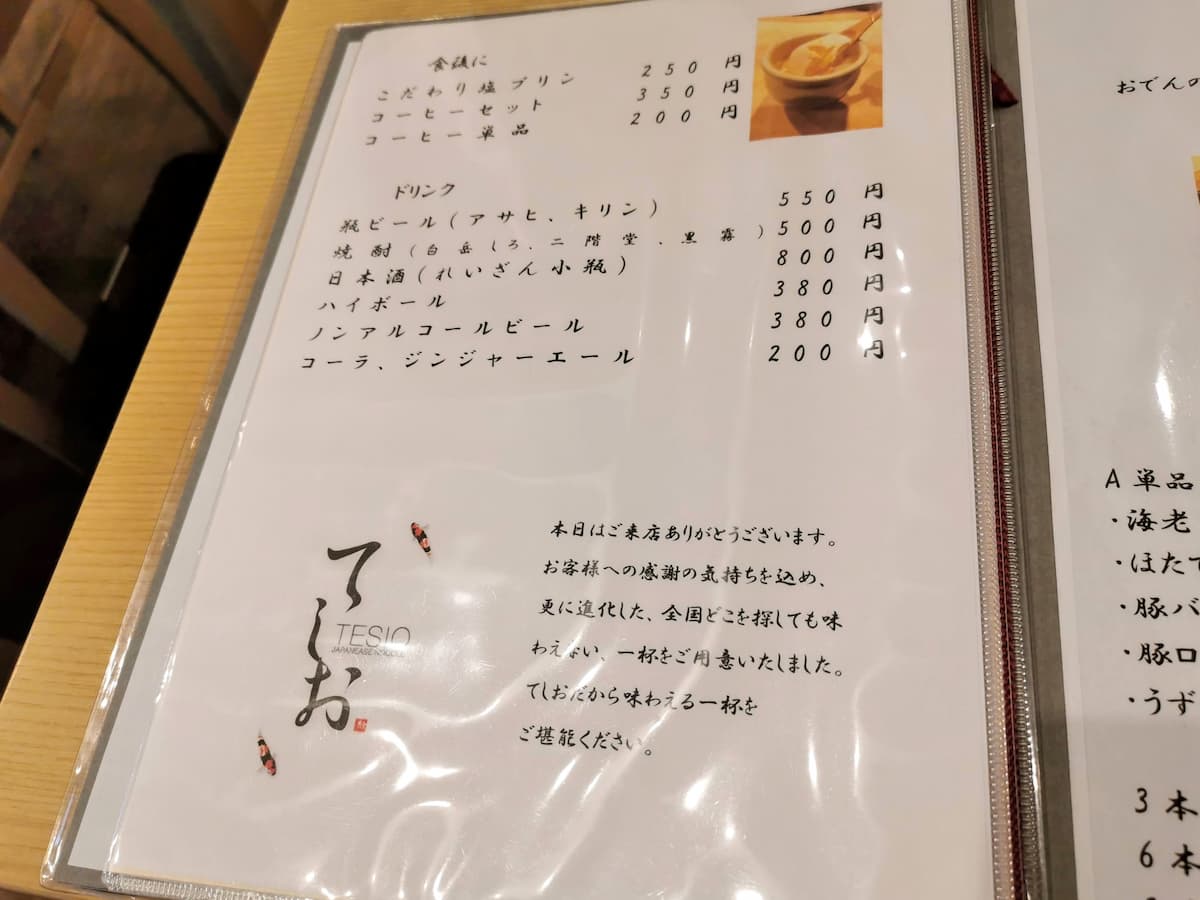 食後に
こだわり塩プリン 250円
コーヒーセット 350円
コーヒー単品 200円
ドリンク
瓶ビール(アサヒ、キリン) 550円
焼酎(白岳しろ、二階堂、黒霧) 500円
日本酒(れいざん小瓶) 800円
ハイボール 380円
ノンアルコールビール 380円
コーラ、ジンジャーエール 200円
てしお
TESIO
JAPANEASE NOODLE
本日はご来店ありがとうございます。
お客様への感謝の気持ちを込め、
更に進化した、全国どこを探しても味
わえない、一杯をご用意いたしました。
てしおだから味わえる一杯を
ご堪能ください。
おでんの
A単品
・海老
・ほたて
・豚バ
・豚ロ
・うず
3本
6本